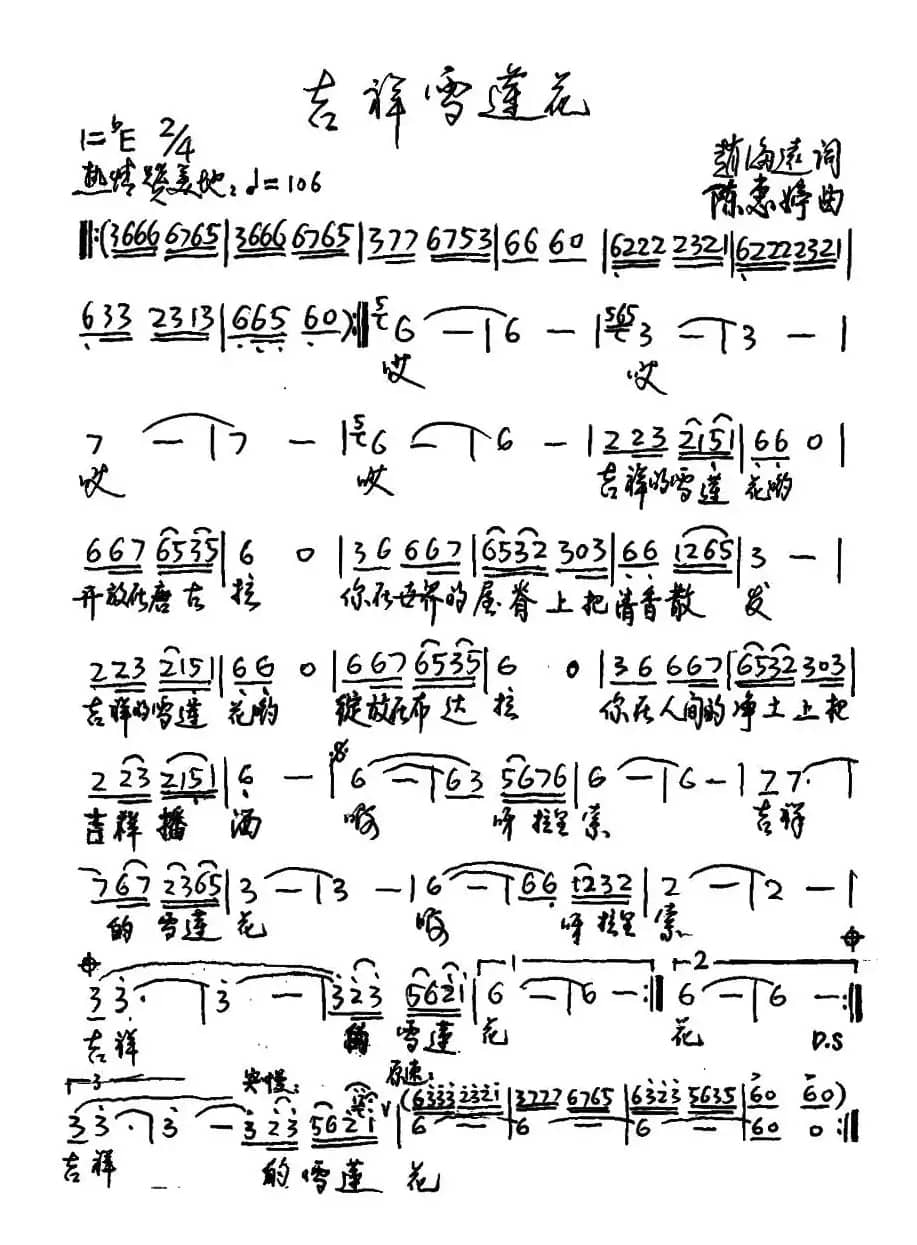 吉祥雪莲花
1=♭E 2/4
热情赞美地：♩=106
赵海远词
陈惠婷曲
‖:(3666 6765|3666 6765|377 6753|66 60|6222 2321|6222 2321|
633 2313|665 60):‖ 5 6 —|6 —|565 3 —|3 —|
哎 哎
7 —|7 —|5 6 —|6 —|223 2151|66 0|
哎 哎 吉祥的雪莲 花哟
667 6535|6 0|36 667|6532 303|66 1265|3 —|
开放在唐古 拉 你在世界的屋脊上把清香散 发
223 2151|66 0|667 6535|6 0|36 667|6532 303|
吉祥的雪莲 花哟 绽放在布达 拉 你在人间的净土上把
223 2151|6 —|6 —|63 5676|6 —|6 —|77· |
吉祥播 洒 啊 呀拉里索 吉祥
767 2365|3 —|3 —|6 —|66 1232|2 —|2 —|
的雪莲 花 啊 呀拉里 索
33· |3 —|323 5621|1 6 —|6 —:‖2 6 —|6 —:‖
吉祥 的 雪莲 花 花 D.S
3 突慢： 原速：
33· |3 —|323 5621 V|(6333 2321|3777 6765|6323 5635|60 60)
6 —|6 —|6 —|60 0:‖
吉祥 的雪莲 花